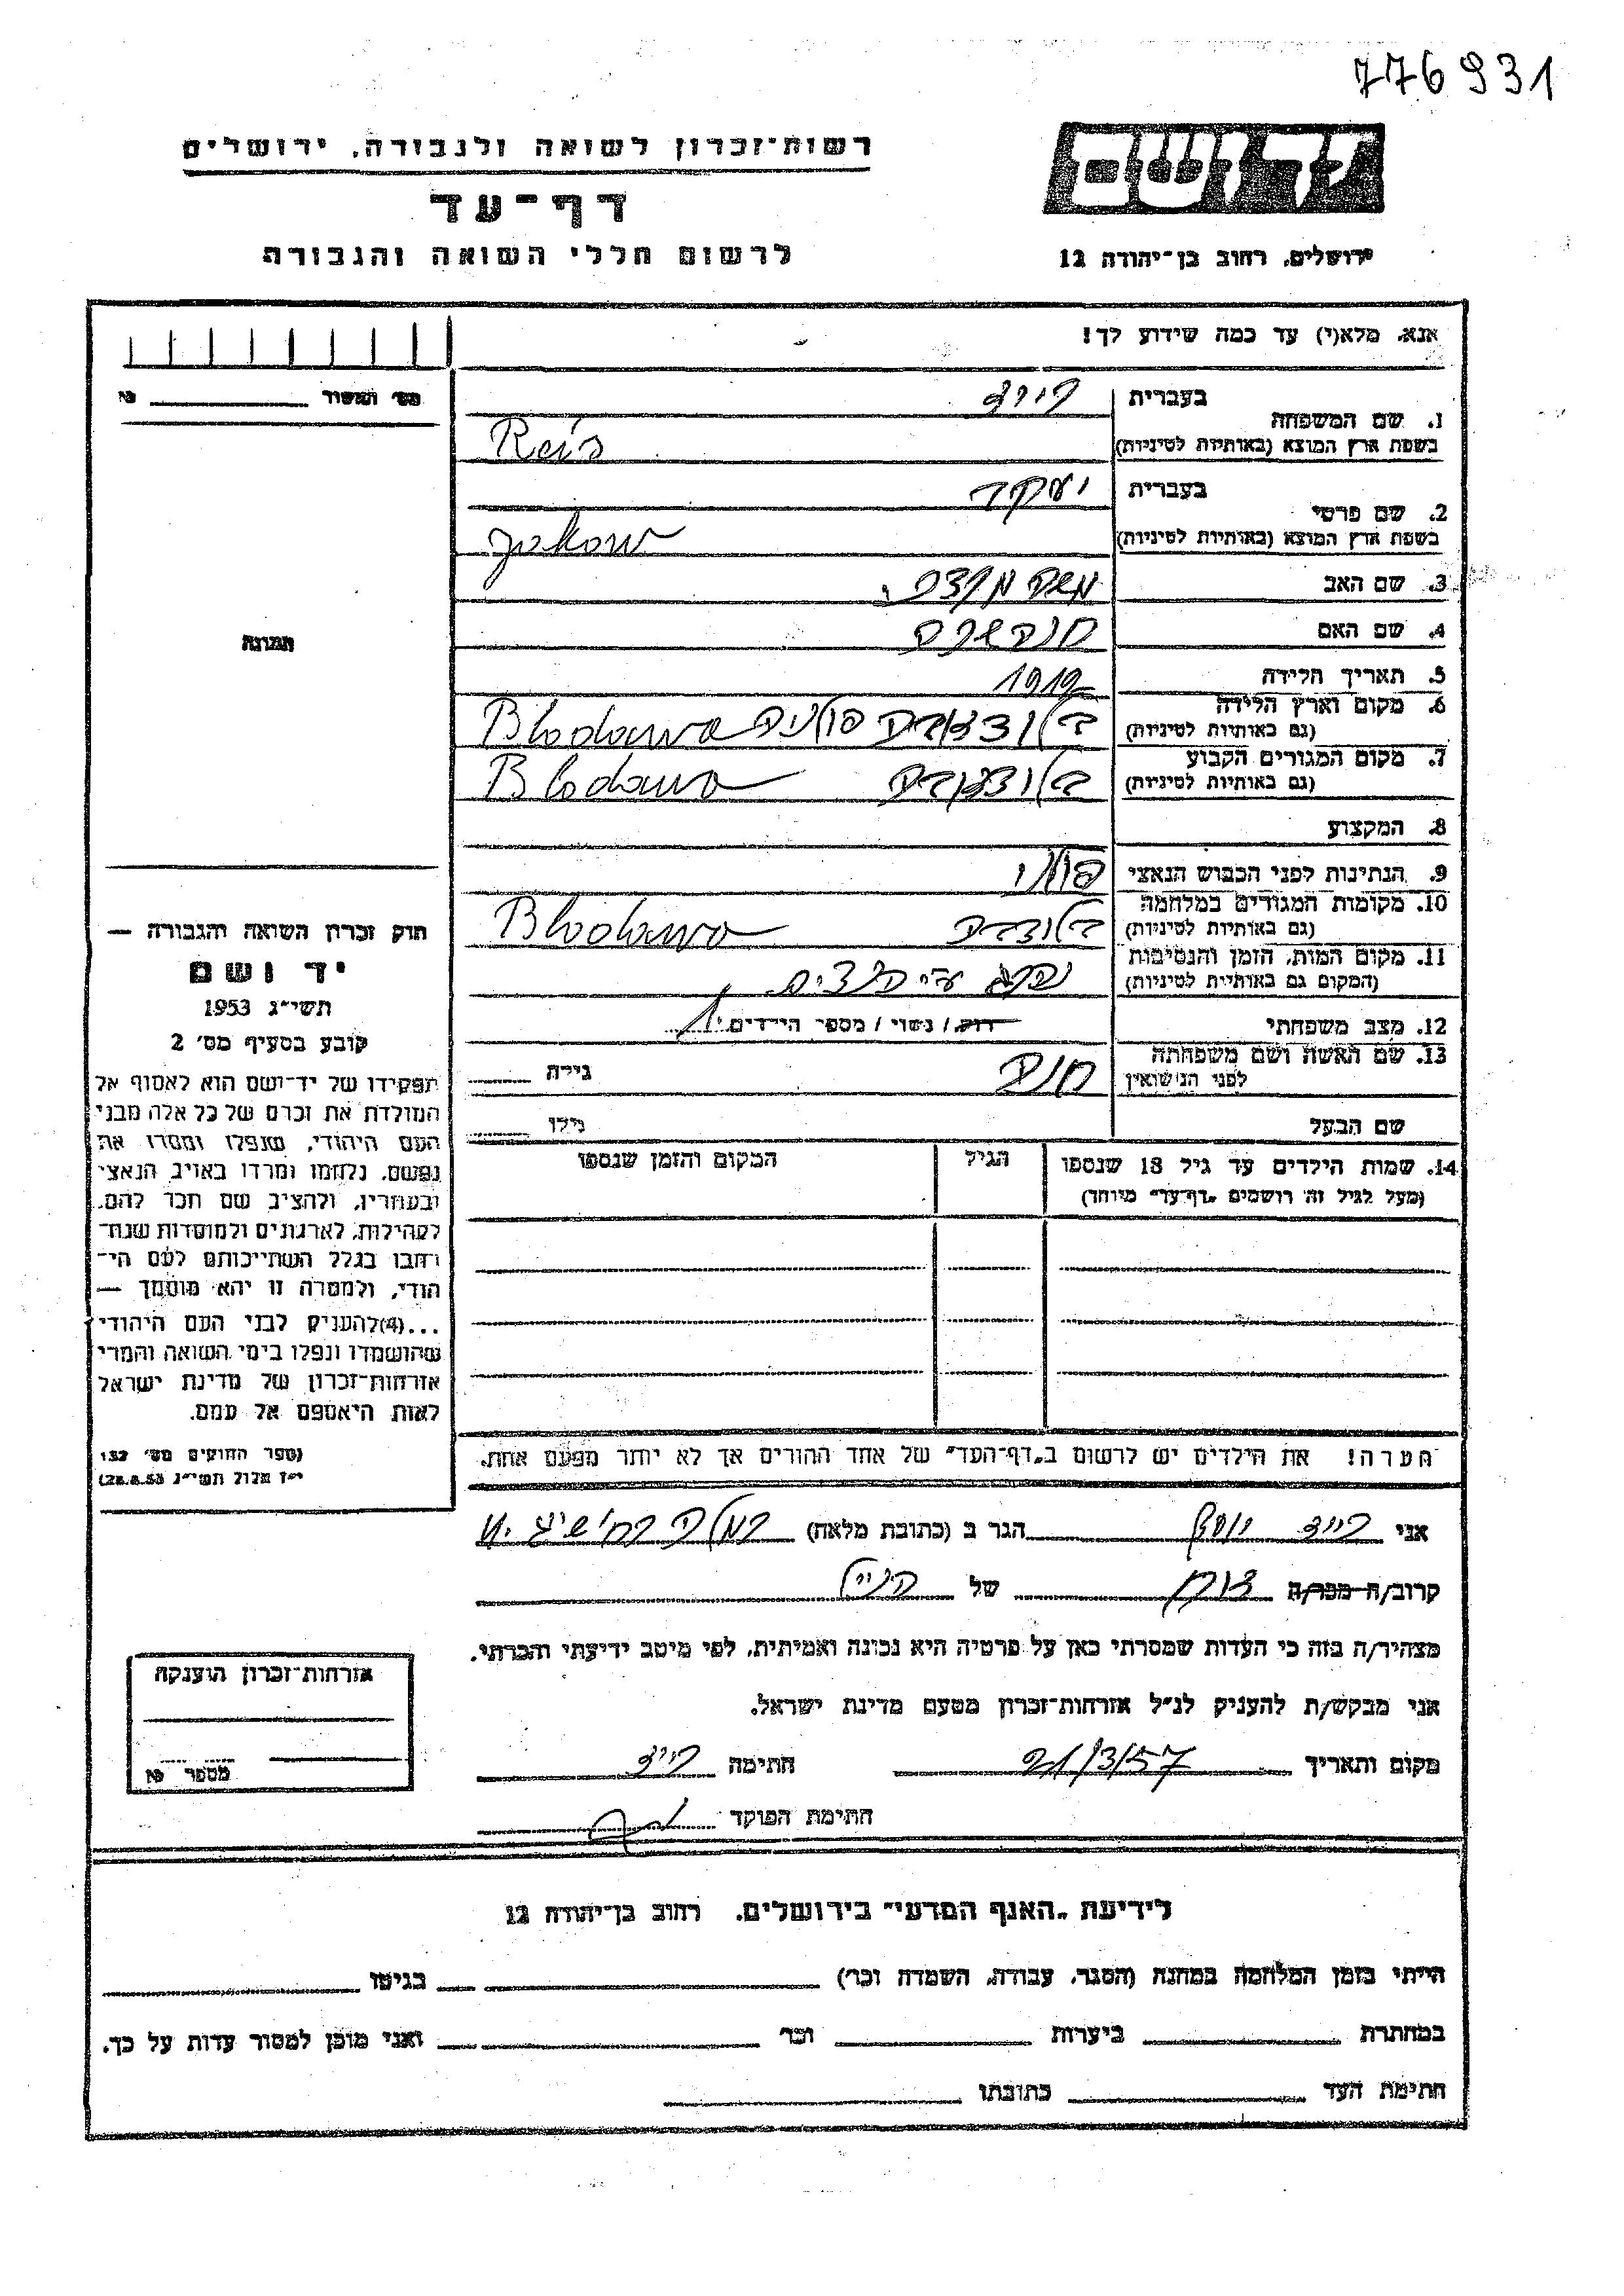 776931
יד ושם
ירושלים, רחוב בן־יהודה 12
רשות־זכרון לשואה ולגבורה, ירושלים
דף־עד
לרשום חללי השואה והגבורה
אנא, מלא(י) עד כמה שידוע לך!
מס׳ האשור №
1. שם המשפחה בעברית רייז
בשפת ארץ המוצא (באותיות לטיניות) Reis
2. שם פרטי בעברית יעקב
בשפת ארץ המוצא (באותיות לטיניות) Jakow
3. שם האב משה
4. שם האם חנה
5. תאריך הלידה 1919
6. מקום וארץ הלידה (גם באותיות לטיניות) פולניה Blodawa
7. מקום המגורים הקבוע (גם באותיות לטיניות) Blodawa
8. המקצוע
9. הנתינות לפני הכבוש הנאצי פולני
10. מקומות המגורים במלחמה (גם באותיות לטיניות) Blodawa
11. מקום המות, הזמן והנסיבות (המקום גם באותיות לטיניות) ע״י
12. מצב משפחתי רוק/ נשוי / מספר הילדים 1
13. שם האשה ושם משפחתה לפני הנישואין חנה גילה
שם הבעל גילו
14. שמות הילדים עד גיל 18 שנספו הגיל המקום והזמן שנספו
(מעל לגיל זה רושמים „דף־עד״ מיוחד)
הערה! את הילדים יש לרשום ב„דף־העד״ של אחד ההורים אך לא יותר מפעם אחת.
תמונה
חוק זכרון השואה והגבורה —
יד ושם
תשי״ג 1953
קובע בסעיף מס׳ 2
תפקידו של יד־ושם הוא לאסוף אל
המולדת את זכרם של כל אלה מבני
העם היהודי, שנפלו ומסרו את
נפשם, נלחמו ומרדו באויב הנאצי
ובעוזריו, ולהציב שם וזכר להם,
לקהילות, לארגונים ולמוסדות שנח־
רבו בגלל השתייכותם לעם הי־
הודי, ולמטרה זו יהא מוסמך —
...(4)להעניק לבני העם היהודי
שהושמדו ונפלו בימי השואה והמרי
אזרחות־זכרון של מדינת ישראל
לאות היאספם אל עמם.
(ספר החוקים מס׳ 132
י״ז אלול תשי״ג 28.8.53)
אני רייז יוסף הגר ב (כתובת מלאה)
קרוב/ה מכר/ה של הנ״ל
מצהיר/ה בזה כי העדות שמסרתי כאן על פרטיה היא נכונה ואמיתית, לפי מיטב ידיעתי והכרתי.
אני מבקש/ת להעניק לנ״ל אזרחות־זכרון מטעם מדינת ישראל.
מקום ותאריך 21/3/57 חתימה רייז
חתימת הפוקד
אזרחות־זכרון הוענקה
מספר №
לידיעת „האגף המדעי״ בירושלים, רחוב בן־יהודה 12
הייתי בזמן המלחמה במחנה (הסגר, עבודה, השמדה וכו׳) בגיטו
במחתרת ביערות וכו׳ ואני מוכן למסור עדות על כך.
חתימת העד כתובתו